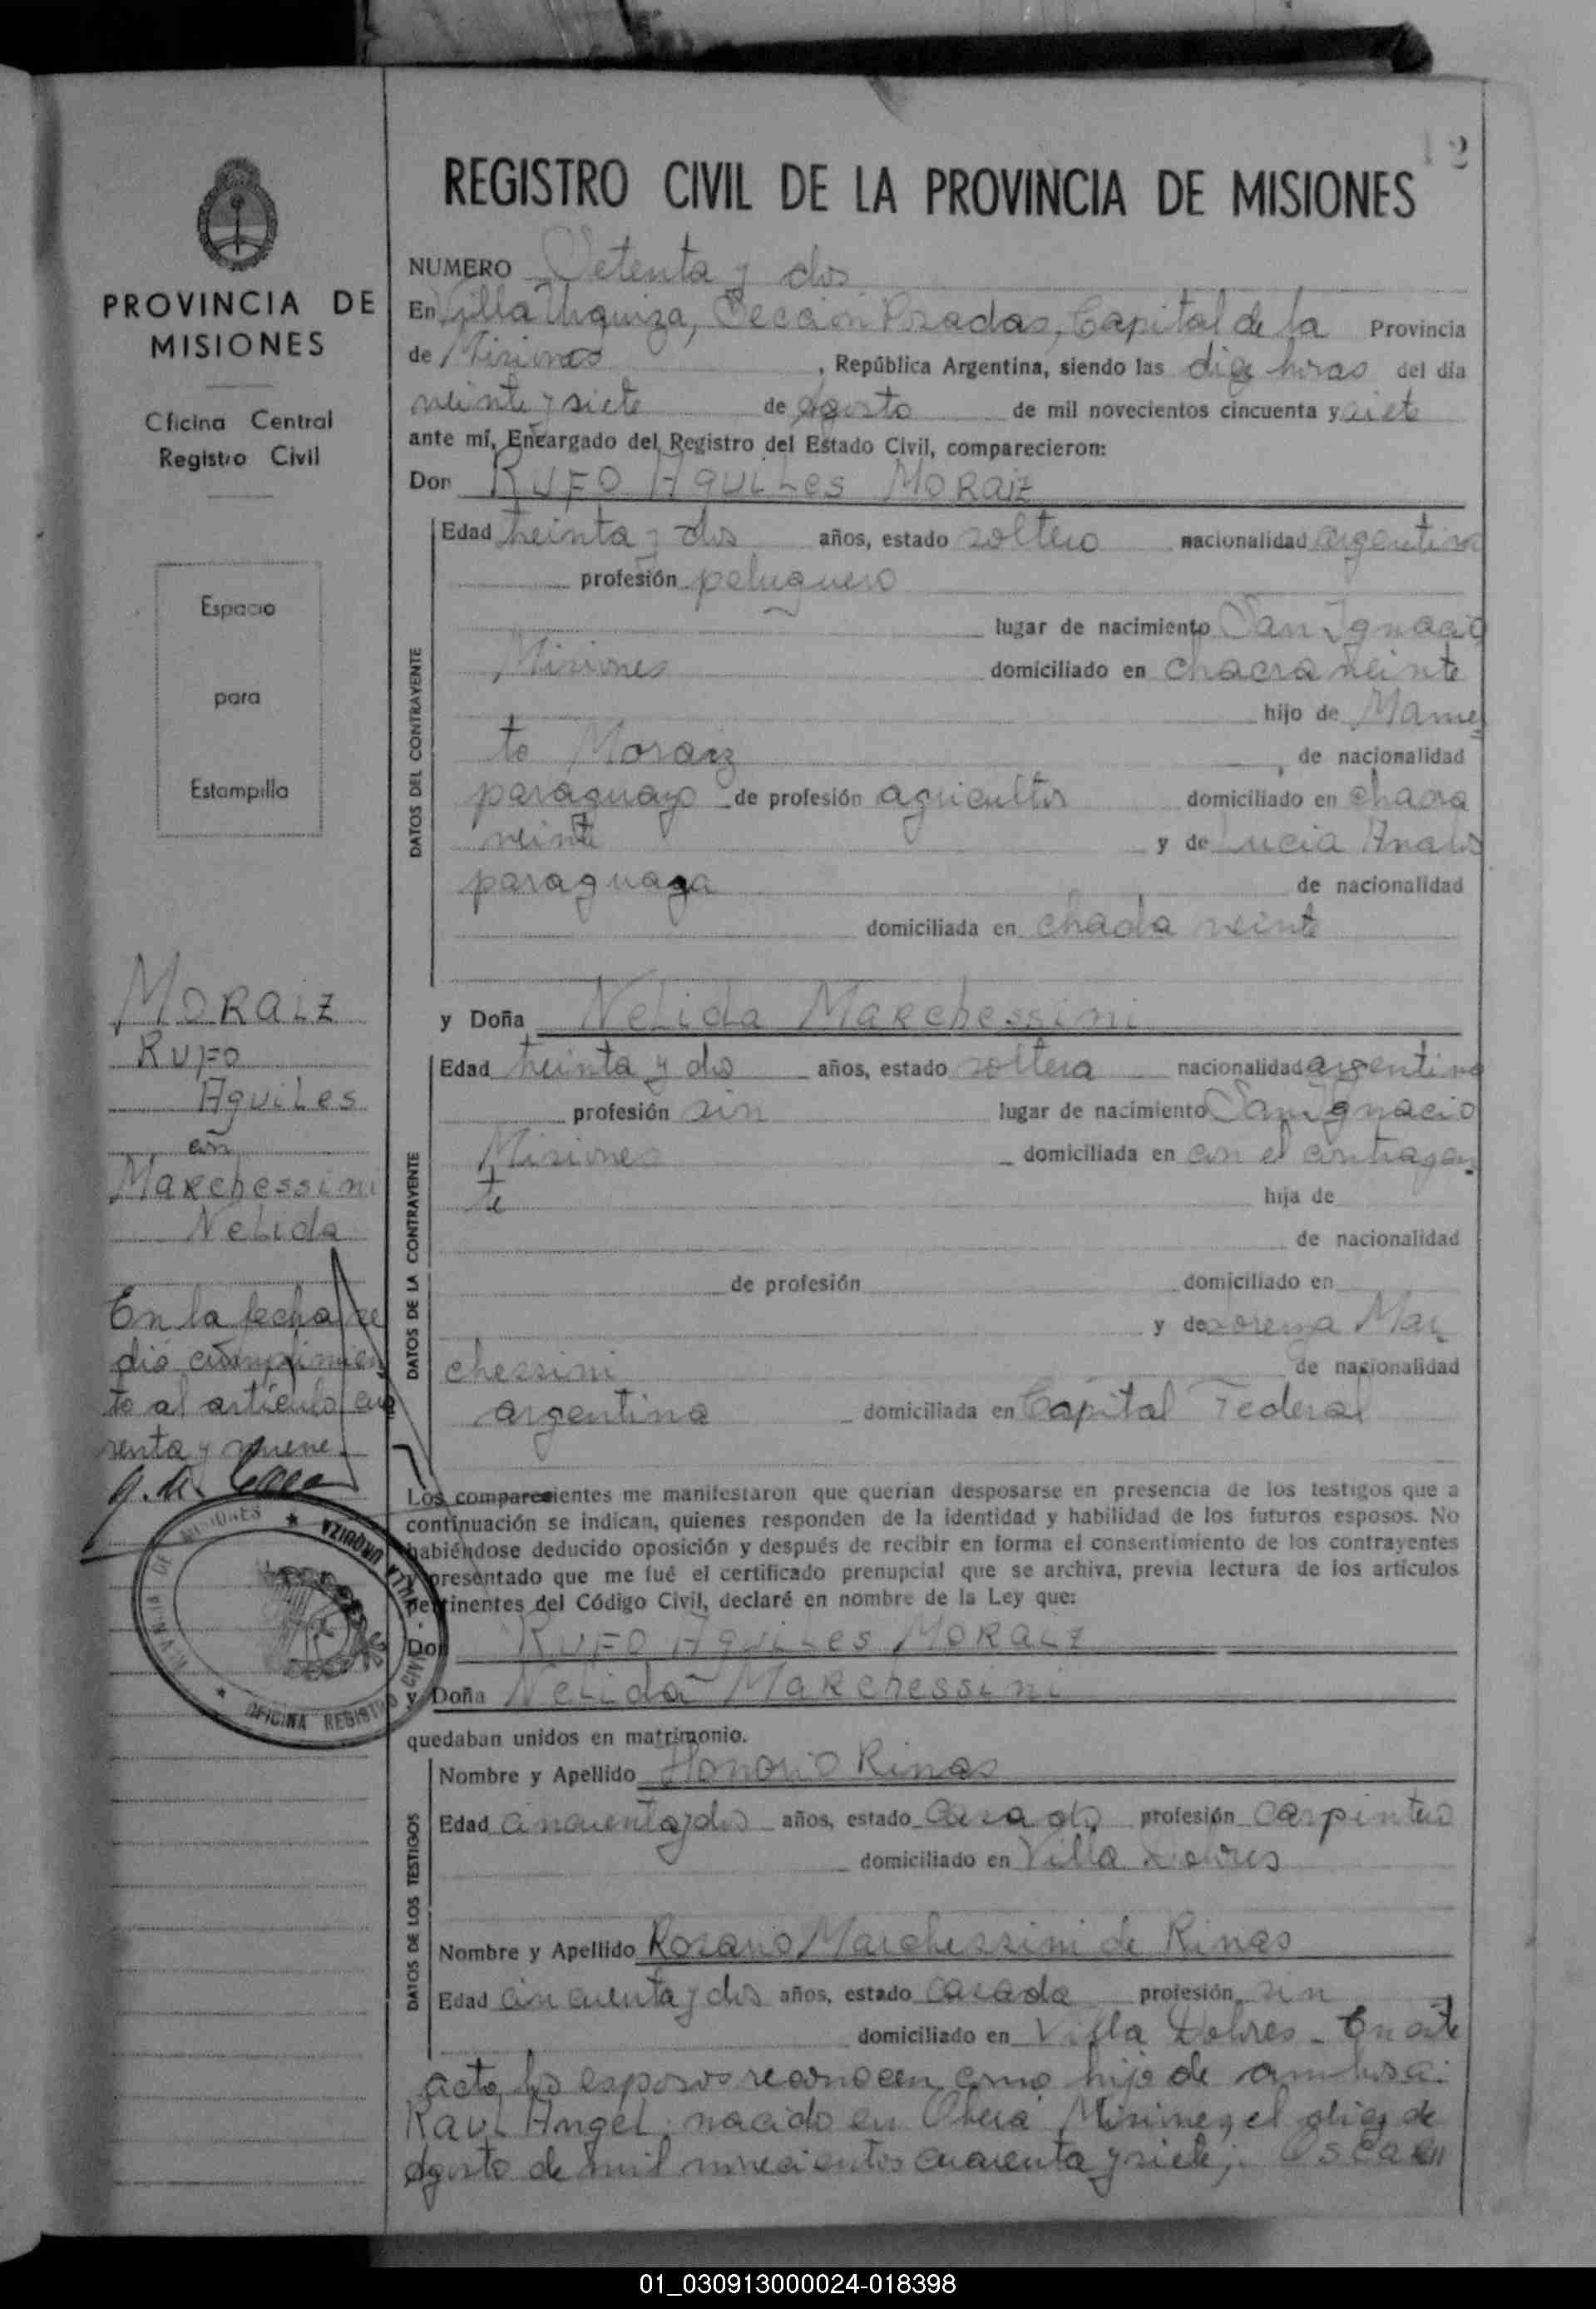 12
REGISTRO CIVIL DE LA PROVINCIA DE MISIONES
PROVINCIA DE
MISIONES
Oficina Central
Registro Civil
Espacio
para
Estampilla
MORAIZ
RUFO
AQUILES
con
MARCHESSINI
NELIDA
En la fecha se
dió cumplimien
to al artículo cua
renta y nueve.
VILLA URQUIZA
OFICINA REGISTRO CIVIL
NUMERO Setenta y dos
En Villa Urquiza, Sección Posadas, Capital de la Provincia
de Misiones, República Argentina, siendo las diez horas del día
veinte y siete de agosto de mil novecientos cincuenta y siete
ante mí, Encargado del Registro del Estado Civil, comparecieron:
Don RUFO AQUILES MORAIZ
DATOS DEL CONTRAYENTE
Edad treinta y dos años, estado soltero nacionalidad argentina
profesión peluquero
lugar de nacimiento San Ignacio
Misiones domiciliado en chacra veinte
hijo de Mame
to Moraiz, de nacionalidad
paraguayo de profesión agricultor domiciliado en chacra
veinte y de Lucia
paraguaya de nacionalidad
domiciliada en chacra veinte
y Doña NELIDA MARCHESSINI
DATOS DE LA CONTRAYENTE
Edad treinta y dos años, estado soltera nacionalidad argentina
profesión sin lugar de nacimiento San Ignacio
Misiones domiciliada en con el contrayen
te hija de
de nacionalidad
de profesión domiciliado en
y de Lorenza Mar
chessini de nacionalidad
argentina domiciliada en Capital Federal
Los comparecientes me manifestaron que querían desposarse en presencia de los testigos que a
continuación se indican, quienes responden de la identidad y habilidad de los futuros esposos. No
habiéndose deducido oposición y después de recibir en forma el consentimiento de los contrayentes
y presentado que me fué el certificado prenupcial que se archiva, previa lectura de los artículos
pertinentes del Código Civil, declaré en nombre de la Ley que:
Don RUFO AQUILES MORAIZ
y Doña NELIDA MARCHESSINI
quedaban unidos en matrimonio.
DATOS DE LOS TESTIGOS
Nombre y Apellido Honorio Rinas
Edad cincuenta y dos años, estado casado profesión carpintero
domiciliado en Villa Dolores
Nombre y Apellido Rosario Marchessini de Rinas
Edad cincuenta y dos años, estado casada profesión sin
domiciliado en Villa Dolores - En este
acto los esposos reconocen como hijo de ambos a:
RAUL ANGEL, nacido en Oberá Misiones, el diez de
agosto de mil novecientos cuarenta y siete;
01_030913000024-018398